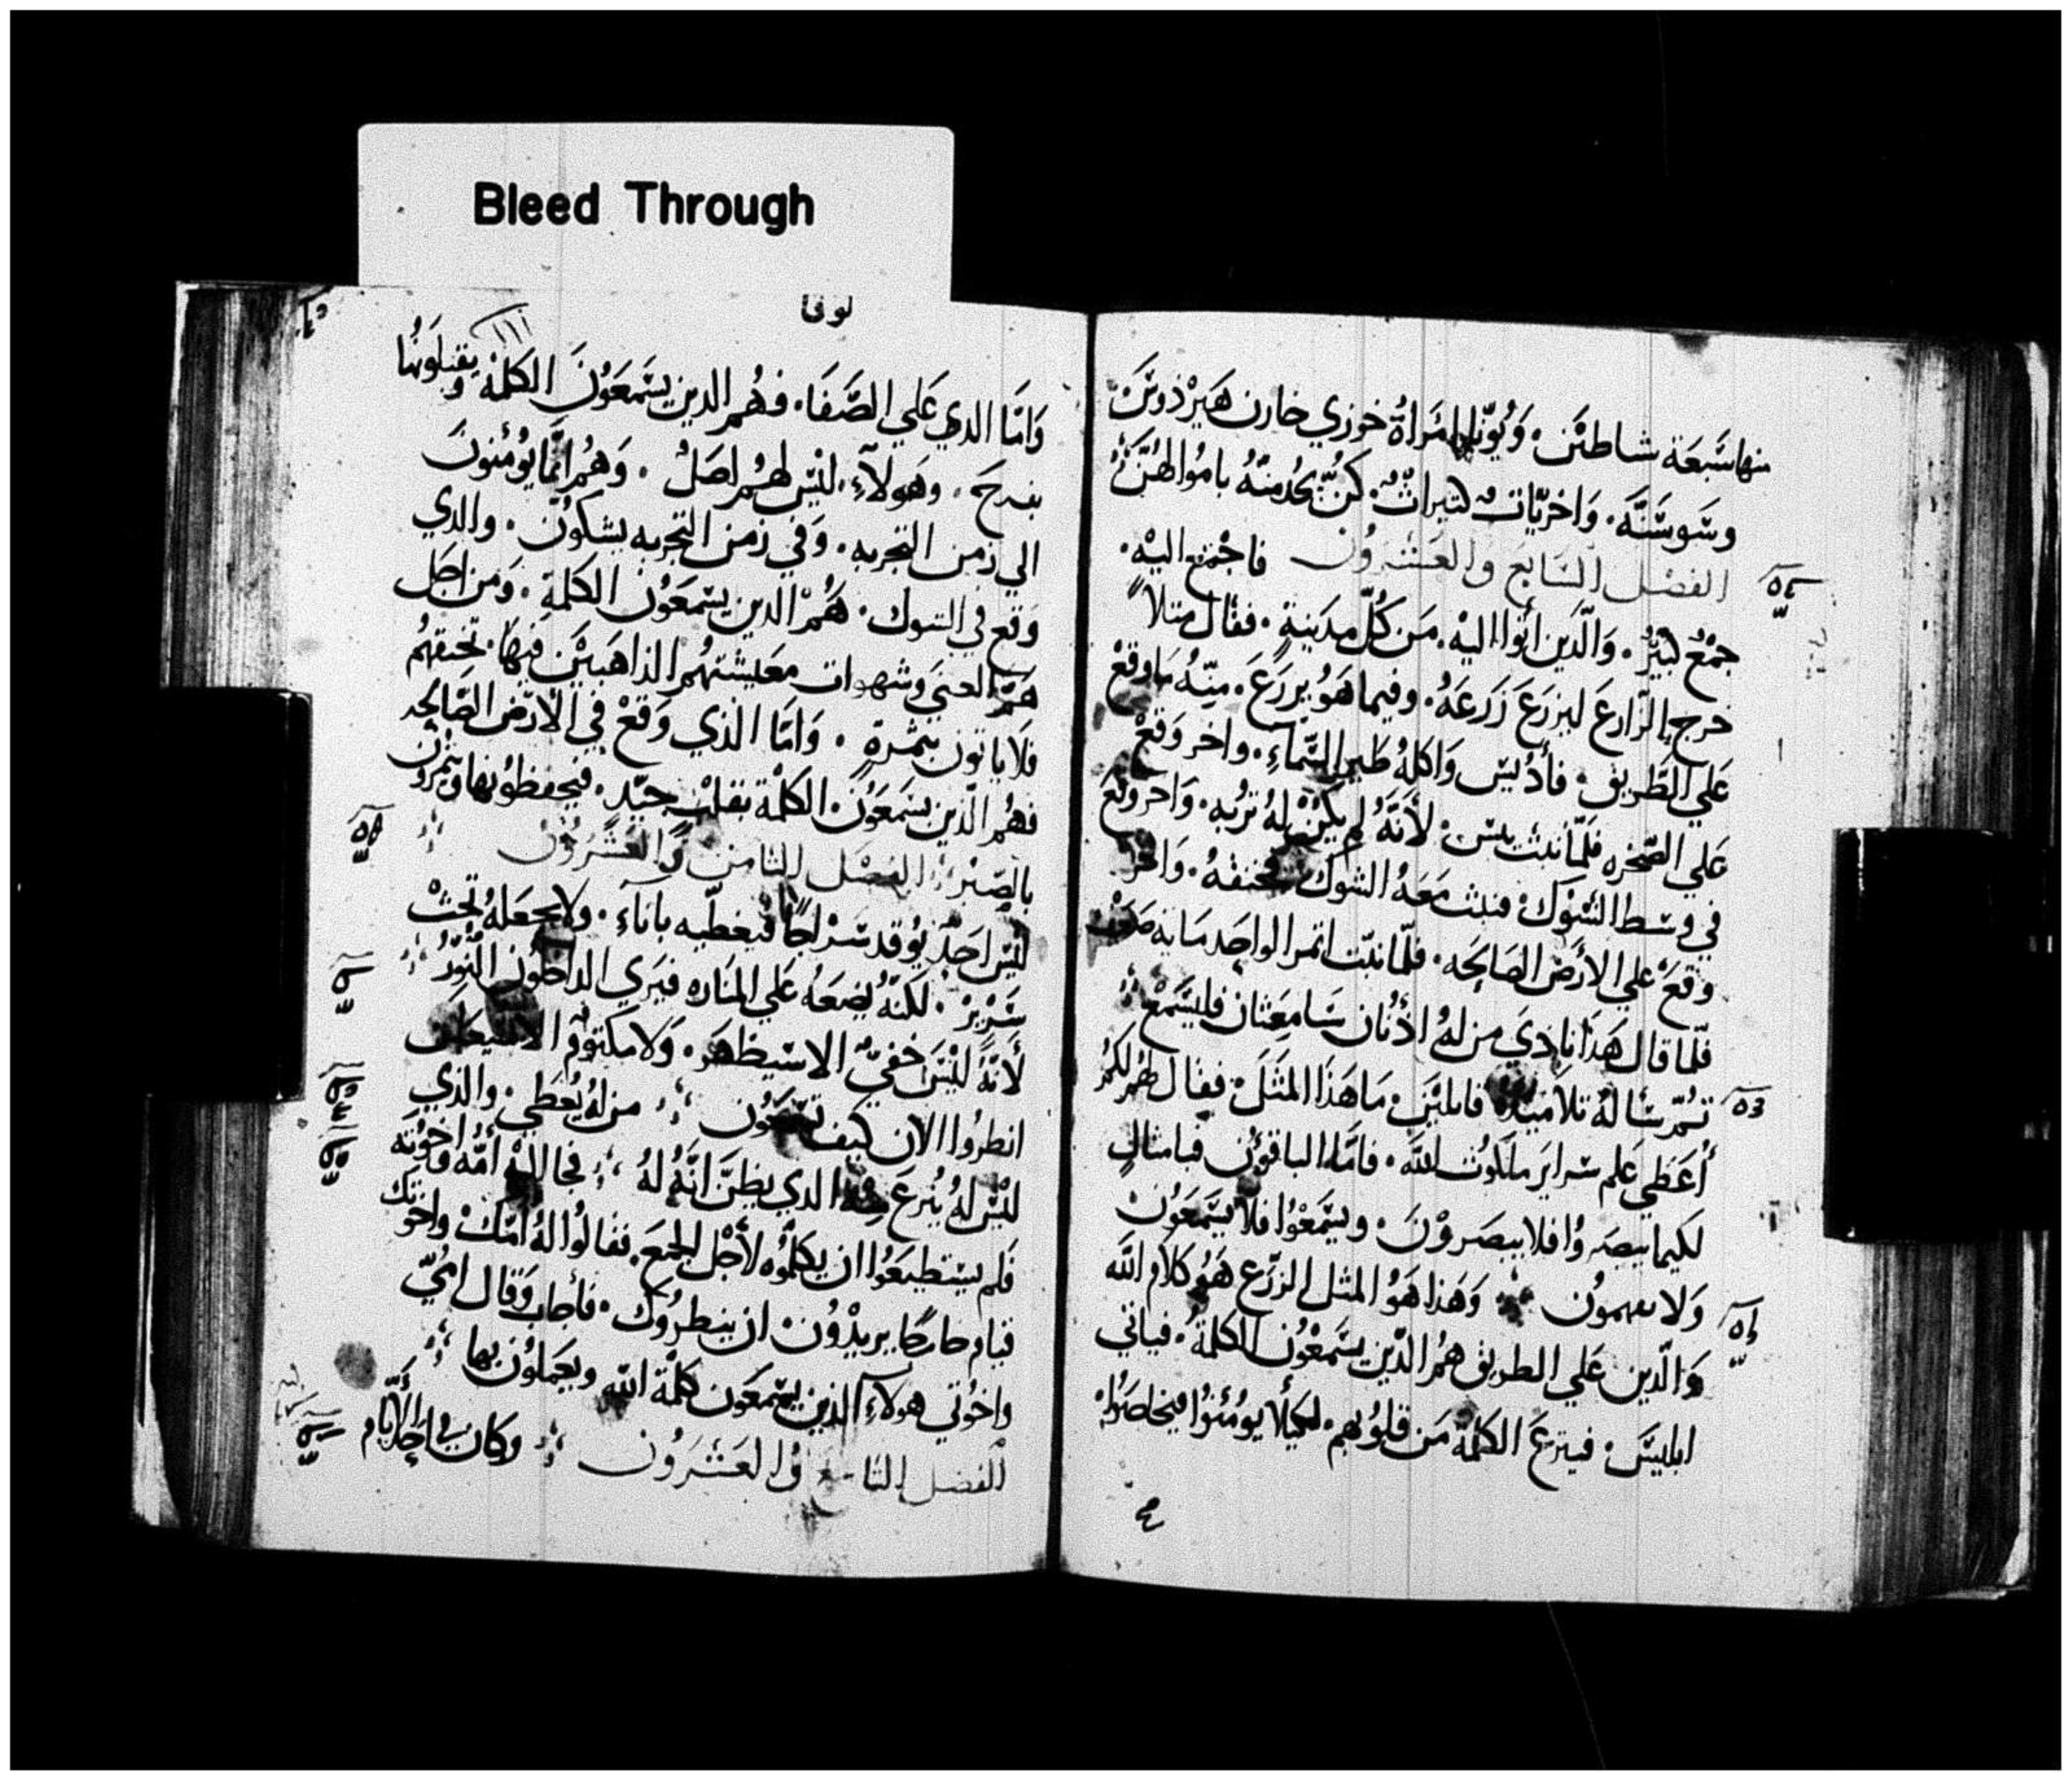 Bleed Through
منها سَبعَة شاطئن. وَيُونّا امرَاةُ خوزي خازن هَيرْدوسَ
وسَوسَنّه. وَاخرَيّات كثيراتٌ. كنُّ يخدُمنَهُ بامُوالهُنَّ
الفصْل السَابعَ والعَشرُون فاجْتمَع اليْه.
جمْعُ كبيْرٌ. وَالّذَين اتوا اليهْ. مَن كُلّ مدَينةٍ. فقال مثلاً
خرج الزّارعَ ليزرَعَ زَرعَهُ. وفيما هَوُ يزرَعَ. مِنهُ مَا وقعْ
عَلي الطَّريق. فأدُيسْ وَاكلهُ طَير السَّمآءِ. واخر وَقعْ
عَلي الصَّخره فلمّا نبت يبسْ. لأنهُ لم يكنْ لهُ تربُه. وَاخر وَقعَ
في وسَط الشَوْك. فنبت مَعَهُ الشوك فخنقهُ. وَاخر
وَقعَ علي الارَضْ الصَالحَه. فلمّا نبت اثمر الواحَد مَايه ضعْف
فلّما قال هَذا نادَيَ من لهُ اذُنان سَامعَتان فليسَّمعْ
تمّ سَألهُ تلاَميذهُ قايليْن. مَا هَذا المثَلَ. فقال لهُم لكمُ
أُعَطي عَلم سَراير ملكوُت اللَّه. فامّا الباقوُن فبامثالٍ
لكيما يبصرُوا فلا يبصَروْنَ. ويسَمعْوُا فلا يسَّمعَوُنْ
وَلا يفهموُن وَهَذا هَوُ المثل الزرّع هَوُ كلاَم اللَه
وَالّذين عَلي الطريق همُ الذّين يسَّمعْوُن الكلمة. فياتي
ابليسَ. فينزعَ الكلمة مَن قلوُبهم. لكيلا يوُمنوُا فيخلصَوُا
لوقا
١١١
وَامّا الذي عَلي الصَّفَا. فهُم الذين يسَّمعَوُنَ الكلمة ويقبلَونهُا
بفرحَ. وهَولآءِ. ليْسَ لهُم اصَلُ. وَهُم انّما يوُمنونَ
الي زمن التجربه. وَفي زمن التجربه يشكوُن. والذي
وَقع في الشوك. هُمّ الذين يسَّمعَوُن الكلمة. وَمن اجَل
همّ الغني وشهوات معَيشتهمُ الذاهَبيْن فيهَا. تخنقهمُ
فلا ياتون بثمرةٍ. وَامّا الذي وَقعْ في الاَرضْ الصَّالحَه
فهُم الّذين يسَمعَوُن الكلمة بقلبْ جيّدٍ. فيحفظوُنها ويثمرُون
بالصَبر الفصْل الثامن والعَشرُون
ليْسَ احَدٌ يوُقد سَراجًا فيغطّيه باناءَ. ولا يجعَلهُ تحتْ
سَريرْ. لكنهُ يضعَهُ عَلي المنَاره فيَري الداخلوُن النوُرُ
لأنهُ ليْسَ خفيّ الا سَيظهَر. وَلا مكتومٌ الا سَيعلَن
انظرُوا الان كيف تسَّمعوُن من لهُ يعُطي. والذي
ليْسَ لهُ يُنزعَ مِنهُ الذي يظنَ انهُ لهُ فجا اليْه امُّه واخوُته
فلم يسَتطيعَوُا ان يكلّموُه لأَجْل الجمعَ. فقالوُا لهُ امّكْ واخوتك
قيام خارجًا يريدْوُن ان ينظرُوك. فأجاب وَقال امُيّ
واخوُتي هولآءِ الذين يسَّمعَون كلمة الله ويعَملوُن بها
الفصَل التاسع والعَشرُون وكان في احَد الايام